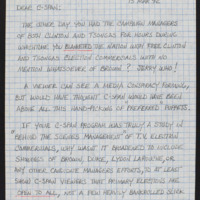 13 MAR 92
DEAR C-SPAN:
THE OTHER DAY YOU HAD THE CAMPAIGN MANAGERS
OF BOTH CLINTON AND TSONGAS FOR HOURS DURING
WHICH TIME YOU BLANKETED THE NATION WITH FREE CLINTON
AND TSONGAS ELECTION COMMERCIALS WITH NO
MENTION WHATSOEVER OF BROWN! JERRY WHO!
A VIEWER CAN SEE A MEDIA CONSPIRACY FORMING,
BUT WOULD HAVE THOUGHT C-SPAN WOULD HAVE BEEN
ABOVE ALL THIS HAND-PICKING OF "PREFERRED" PUPPETS.
IF YOUR C-SPAN PROGRAM WAS TRULY A STUDY IN
"BEHIND THE SCENES MANAGEMENT" OF T.V. ELECTION
COMMERCIALS, WHY WASN'T IT BROADENED TO INCLUDE
SHOWERS OF BROWN, DUKE, LYDON LAROUCHE, OR
ANY OTHER CANDIDATE MANAGERS EFFORTS, TO AT LEAST
SHOW C-SPAN VIEWERS THAT PRIMARY ELECTIONS ARE
OPEN TO ALL, NOT A FEW HEAVILY BANKROLLED SLICK